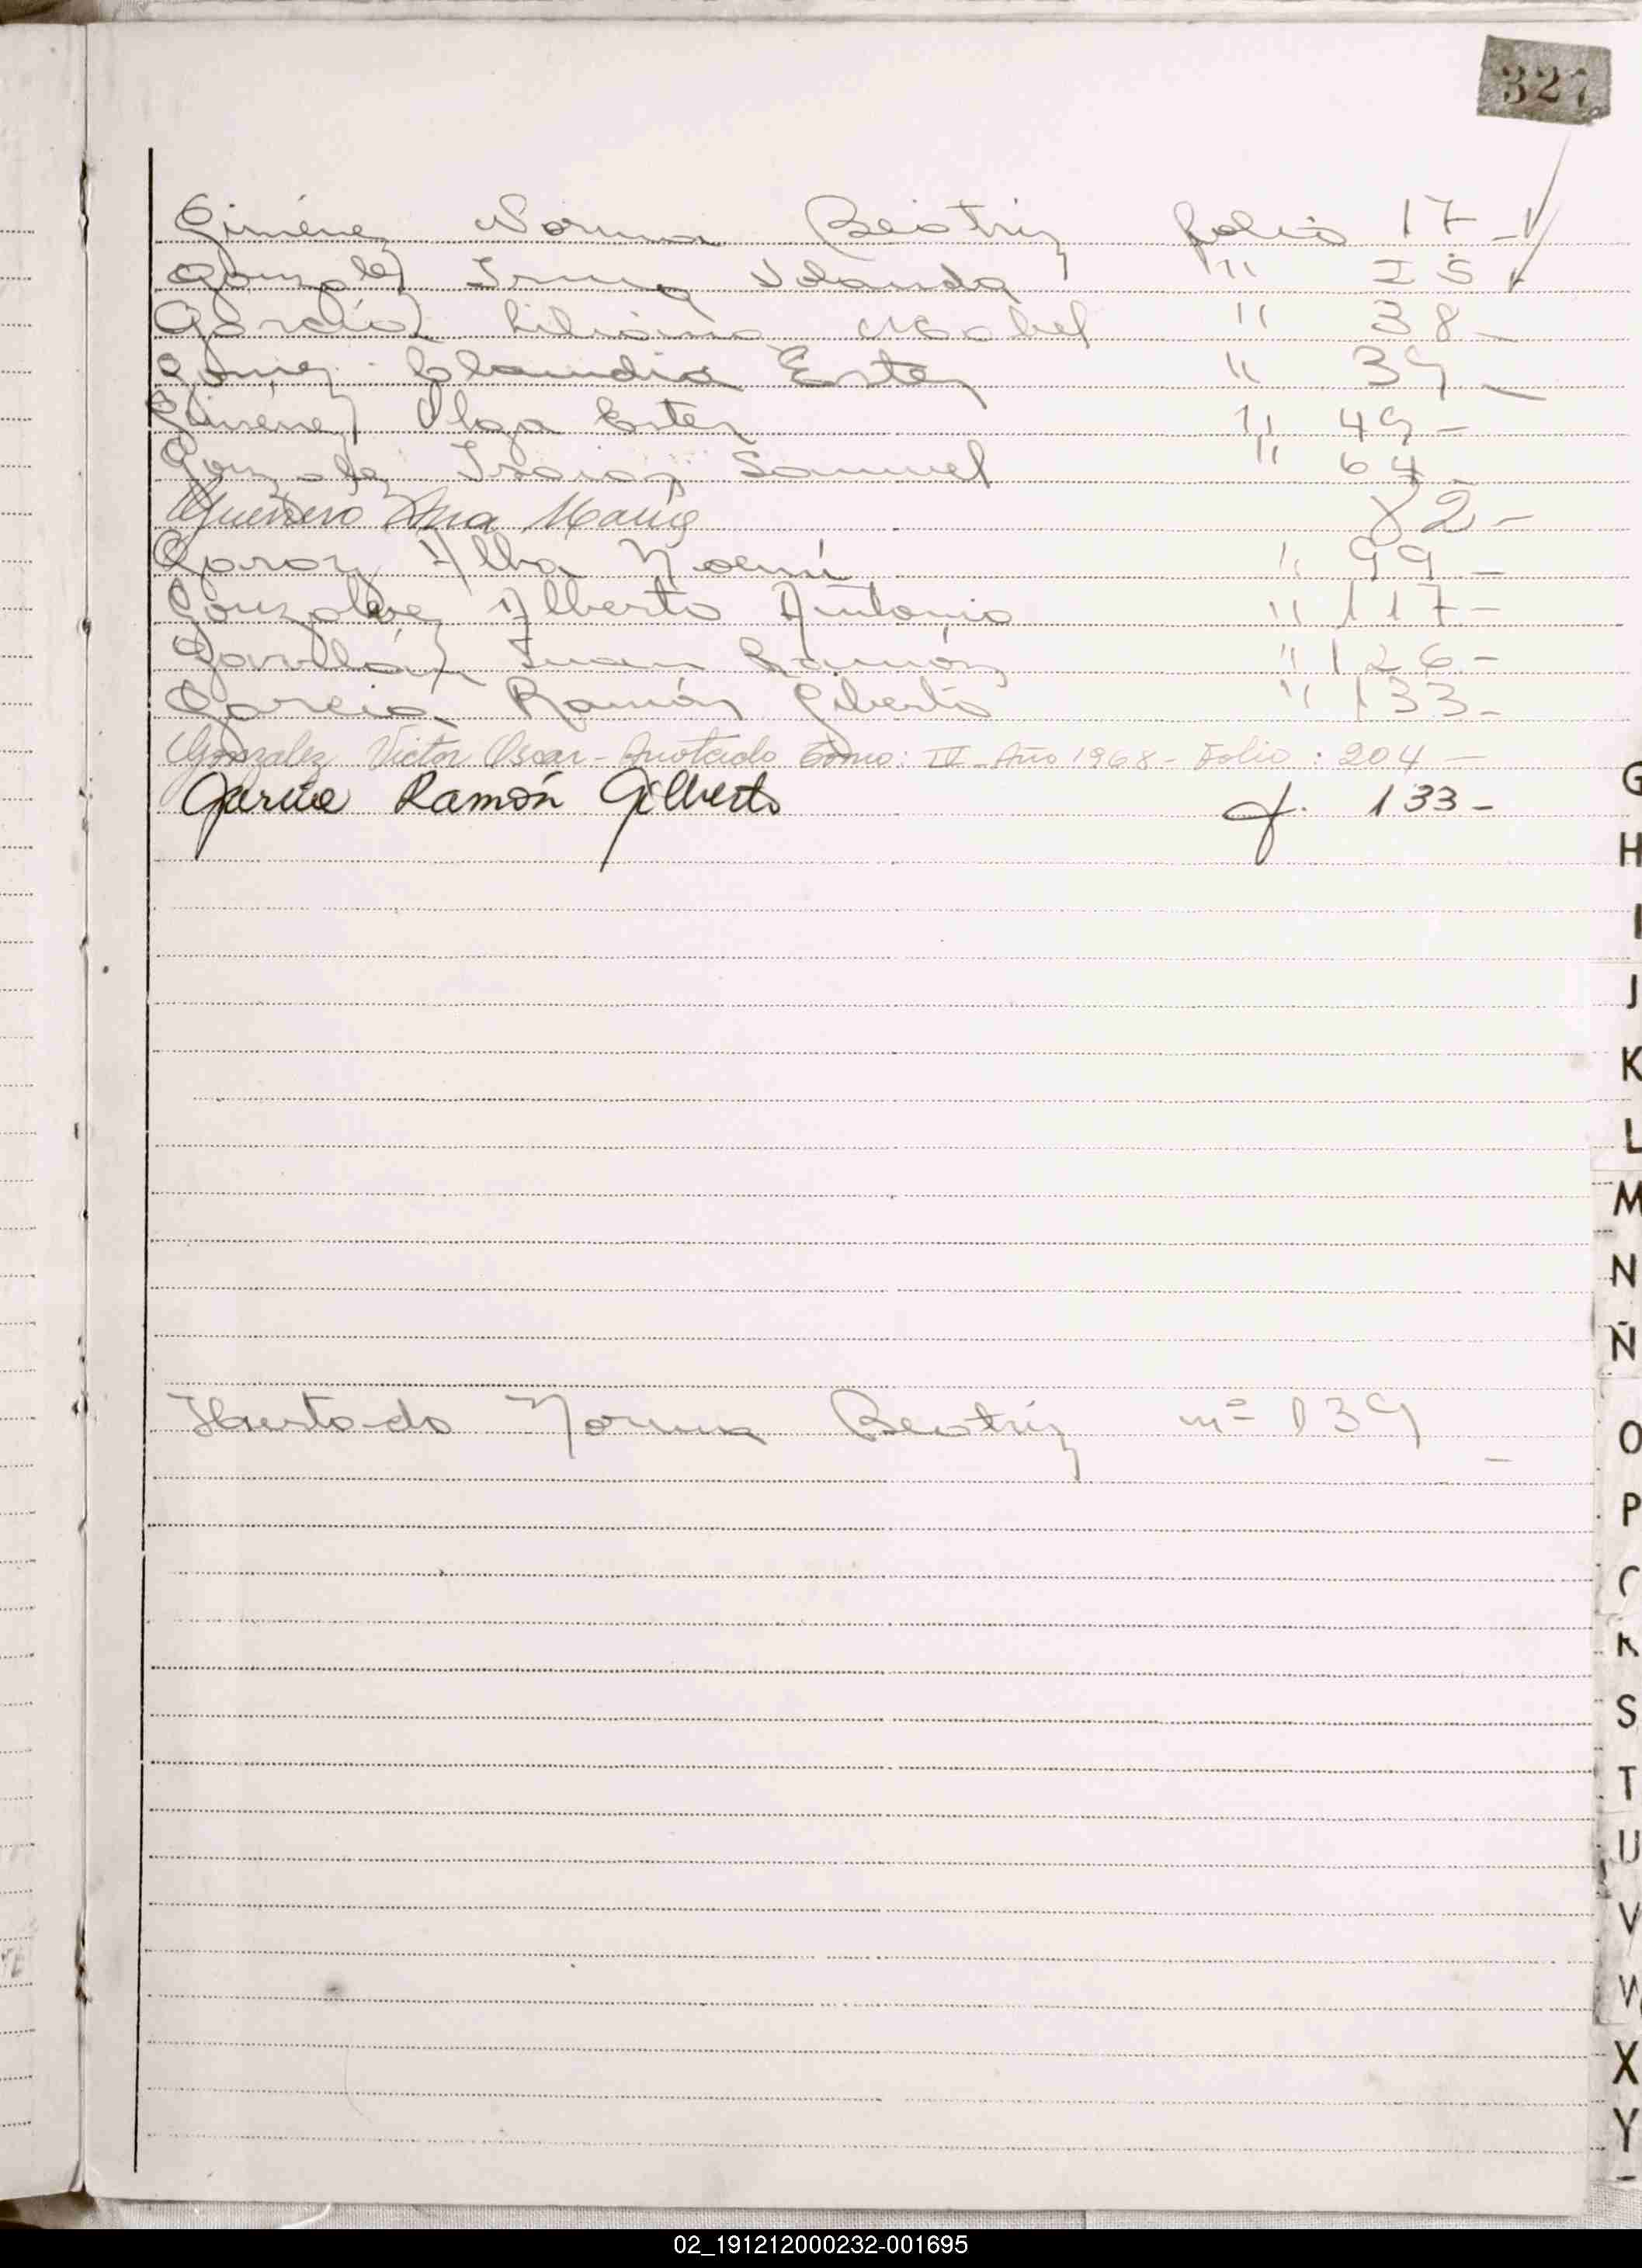 327
Giménez Norma Beatriz folio 17-
Gonzalez Irma Yolanda " 25
García Liliana Mabel " 38-
Gómez Claudia Ester " 39-
Giménez Olga Ester " 49-
Gonzalez Isaias Samuel " 64
Guerrero Ana Maria 82-
Garay Alba Noemí " 99-
Gonzalez Alberto Antonio " 117-
Gavilán Juan Ramón " 126-
Garcia Ramón Giberto " 133-
Gonzalez Victor Oscar - Anotado Tomo: IV - Año 1968 - Folio: 204 -
García Ramón Gilberto f. 133-
G
H
I
J
K
L
M
N
Ñ
Hurtado Norma Beatriz nº 139-
O
P
S
T
U
V
W
X
Y
02_191212000232-001695